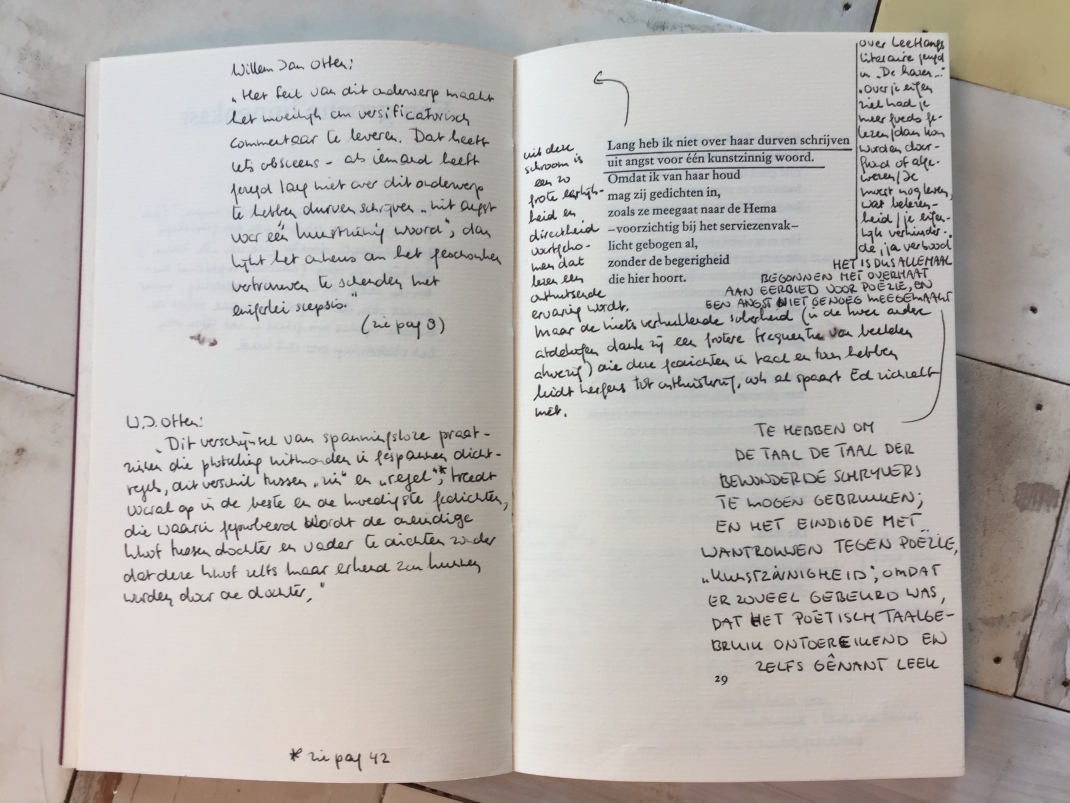 Willem Jan Otten:
„Het feit van dit onderwerp maakt
het moeilijk om versificatorisch
commentaar te leveren. Dat heeft
iets obsceens – als iemand heeft
jarenlang niet over dit onderwerp
te hebben durven schrijven „uit angst
voor één kunstzinnig woord", dan
lijkt het alsof om het geschonken
vertrouwen te schenden met
enigerlei scepsis."
(zie pag 9)
W.J. Otten:
„Dit verschijnsel van spanningsloze praat-
zinnen die plotseling uitmonden in gespannen dicht-
regels, dit verschil tussen „zin" en „regel"*, treedt
vooral op in de beste en de moedigste gedichten,
die waarin geprobeerd wordt de ellendige
kloof tussen dochter en vader te dichten zonder
dat deze kloof zelfs maar erkend kan
worden door de dochter."
* zie pag 42
uit deze
schroom is
een zo
grote eerlijk-
heid en
directheid
voortgeko-
men dat
lezen een
onthutsende
ervaring wordt.
Lang heb ik niet over haar durven schrijven
uit angst voor één kunstzinnig woord.
Omdat ik van haar houd
mag zij gedichten in,
zoals ze meegaat naar de Hema
–voorzichtig bij het serviezenvak–
licht gebogen al,
zonder de begerigheid
die hier hoort.
over Leeflangs
literaire jeugd
in „De haven..."
„over je eigen
ziel had je
meer reeds ge-
lezen/dan kon
worden door-
leefd of afge-
weren/Je
moest nog leven,
wat belezen-
heid/je eigen-
lijk verhinder-
de, ja verbood"
HET IS DUS ALLEMAAL
BEGONNEN MET OVERMAAT
AAN EERBIED VOOR POËZIE, EN
EEN ANGST NIET GENOEG MEEGEMAAKT
maar de niets verhullende soberheid (in de twee andere
afdelingen dank zij een grotere frequentie van beelden
afwezig) die deze gedichten in taal en toon hebben
leidt nergens tot onthutsing, ook al spaart Ed zichzelf
niet.
TE HEBBEN OM
DE TAAL DE TAAL DER
BEWONDERDE SCHRIJVERS
TE MOGEN GEBRUIKEN;
EN HET EINDIGDE MET
WANTROUWEN TEGEN POËZIE,
„KUNSTZINNIGHEID", OMDAT
ER ZOVEEL GEBEURD WAS,
DAT HET POËTISCH TAALGE-
BRUIK ONTOEREIKEND EN
ZELFS GÊNANT LEEK
29